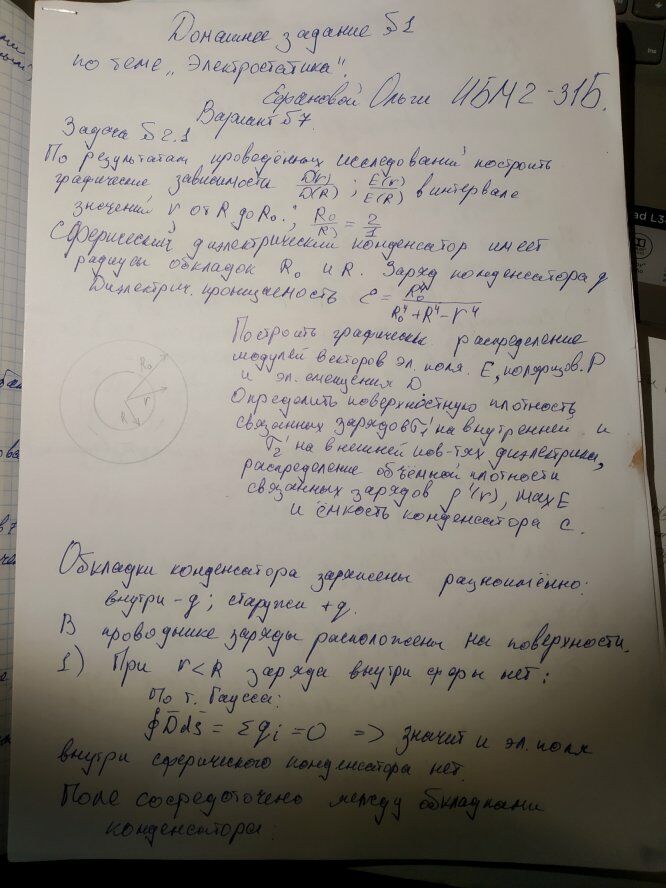 Домашнее задание №1
по теме „Электростатика".
Ефановой Ольги ИБМ2-31Б.
Вариант №7.
Задача №2.1
По результатам проведённых исследований построить
графические зависимости D(r)/D(R) ; E(r)/E(R) в интервале
значений r от R до R₀ ; R₀/R = 2/1
Сферический диэлектрический конденсатор имеет
радиусы обкладок R₀ и R. Заряд конденсатора q
Диэлектрич. проницаемость ε = R₀⁴/(R₀⁴+R⁴-r⁴)
Построить графическ. распределение
модулей векторов эл. поля. E, поляризов. P
и эл. смещения D
Определить поверхностную плотность
связанных зарядов σ₁' на внутренней и
σ₂' на внешней пов-тях диэлектрика,
распределение объёмной плотности
связанных зарядов ρ'(r), max E
и ёмкость конденсатора C.
R₀
r
R
Обкладки конденсатора заряжены разноимённо:
внутри -q ; снаружи +q.
В проводнике заряды расположены на поверхности.
1) При r < R заряда внутри сферы нет:
По т. Гаусса:
∮D̄ds̄ = Σqi = 0 => значит и эл. поля
внутри сферического конденсатора нет.
Поле сосредоточено между обкладками
конденсатора:
ad L3